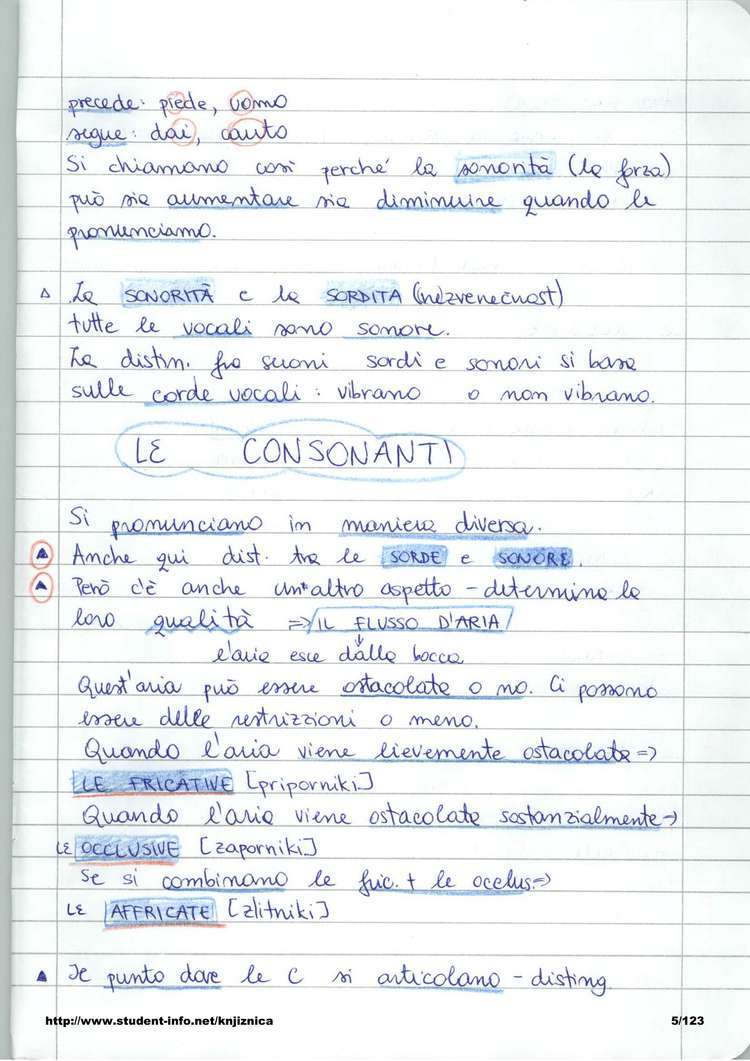 precede: piede, uomo
segue: dai, cauto
Si chiamano così perché la sonorità (la forza)
può sia aumentare sia diminuire quando le
pronunciamo.
La SONORITÀ e la SORDITÀ (nezvenečnost)
tutte le vocali sono sonore.
La distin. fra suoni sordi e sonori si basa
sulle corde vocali : vibrano o non vibrano.
LE CONSONANTI
Si pronunciano in maniera diversa.
Anche qui dist. tra le SORDE e SONORE.
Però c'è anche un'altro aspetto - determina la
loro qualità => IL FLUSSO D'ARIA
l'aria esce dalla bocca
Quest'aria può essere ostacolata o no. Ci possono
essere delle restrizzioni o meno.
Quando l'aria viene lievemente ostacolata =>
LE FRICATIVE [priporniki]
Quando l'aria viene ostacolata sostanzialmente →
LE OCCLUSIVE [zaporniki]
Se si combinano le fric. + le occlus. =>
LE AFFRICATE [zlitniki]
Il punto dove le C si articolano - disting.
http://www.student-info.net/knjiznica 5/123